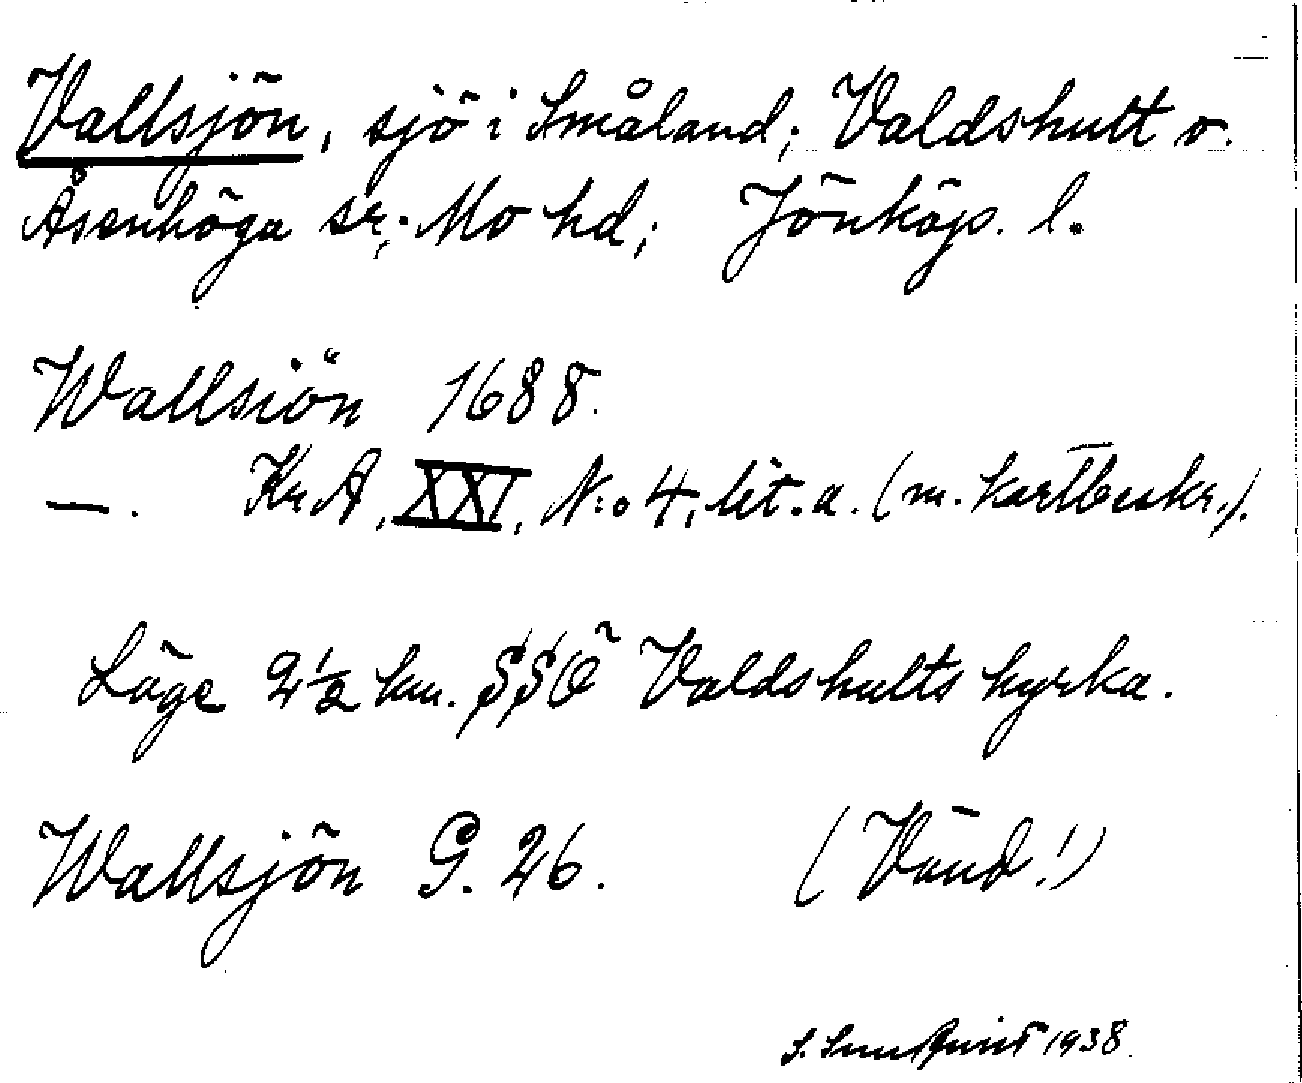 Vallsjön, sjö i Småland; Valdshult o.
Åsenhöga sr; Mo hd; Jönköp. l.
Wallsiön 1688.
—. Kr A, XXI, N:o 4, lit. a. (m. kartbeskr.).
Läge 2½ km. SSÖ Valdshults kyrka.
Wallsjön G. 26. (Vänd!)
1938.